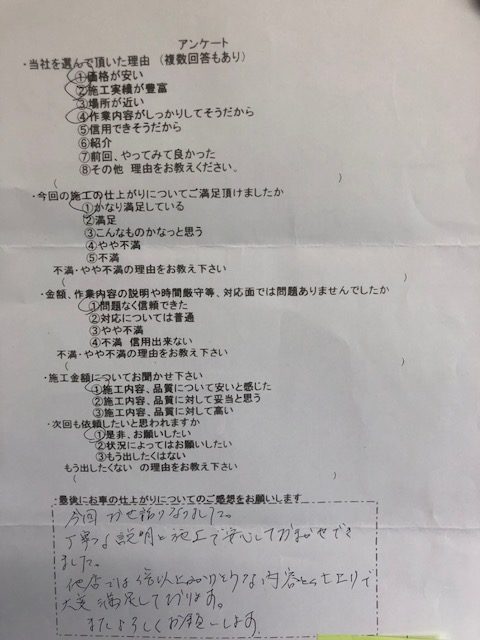 アンケート
・当社を選んで頂いた理由 （複数回答もあり）
①価格が安い
②施工実績が豊富
③場所が近い
④作業内容がしっかりしてそうだから
⑤信用できそうだから
⑥紹介
⑦前回、やってみて良かった
⑧その他 理由をお教えください。
（　　　）
・今回の施工の仕上がりについてご満足頂けましたか
①かなり満足している
②満足
③こんなものかなっと思う
④やや不満
⑤不満
不満・やや不満の理由をお教え下さい
（　　　）
・金額、作業内容の説明や時間厳守等、対応面では問題ありませんでしたか
①問題なく信頼できた
②対応については普通
③やや不満
④不満 信用出来ない
不満・やや不満の理由をお教え下さい
（　　　）
・施工金額についてお聞かせ下さい
①施工内容、品質について安いと感じた
②施工内容、品質に対して妥当と思う
③施工内容、品質に対して高い
・次回も依頼したいと思われますか
①是非、お願いしたい
②状況によってはお願いしたい
③もう出したくはない
もう出したくない の理由をお教え下さい
（　　　）
・最後にお車の仕上がりについてのご感想をお願いします
今回 お世話になりました。
丁寧な説明と施工で安心しておまかせでき
ました。
他店では倍以上 な内容と仕上りで
大変満足しております。
またよろしくお願いします。